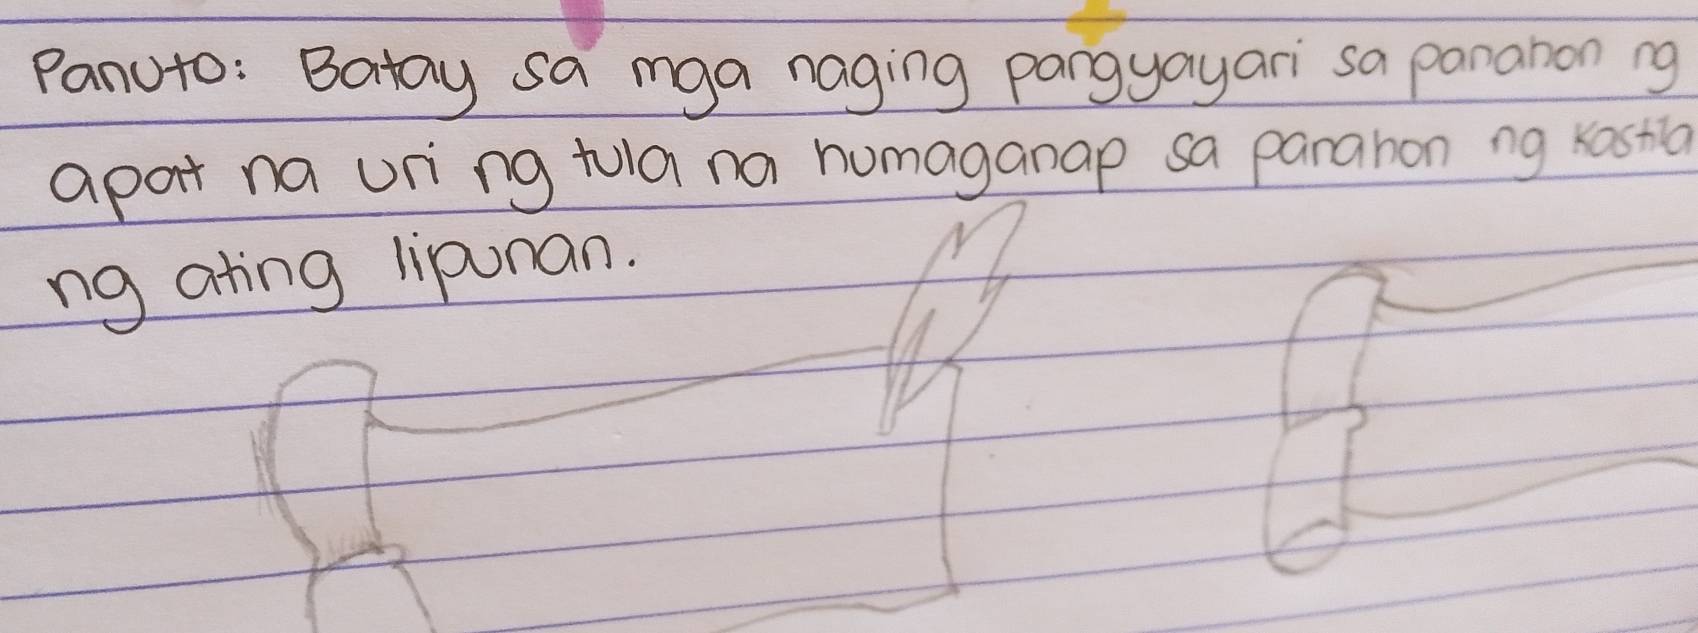 Panuto: Batay sa mga naging pangyayari sa panahon ng
apat na uri ng tula na humaganap sa panahon ng Kastila
ng ating lipunan.